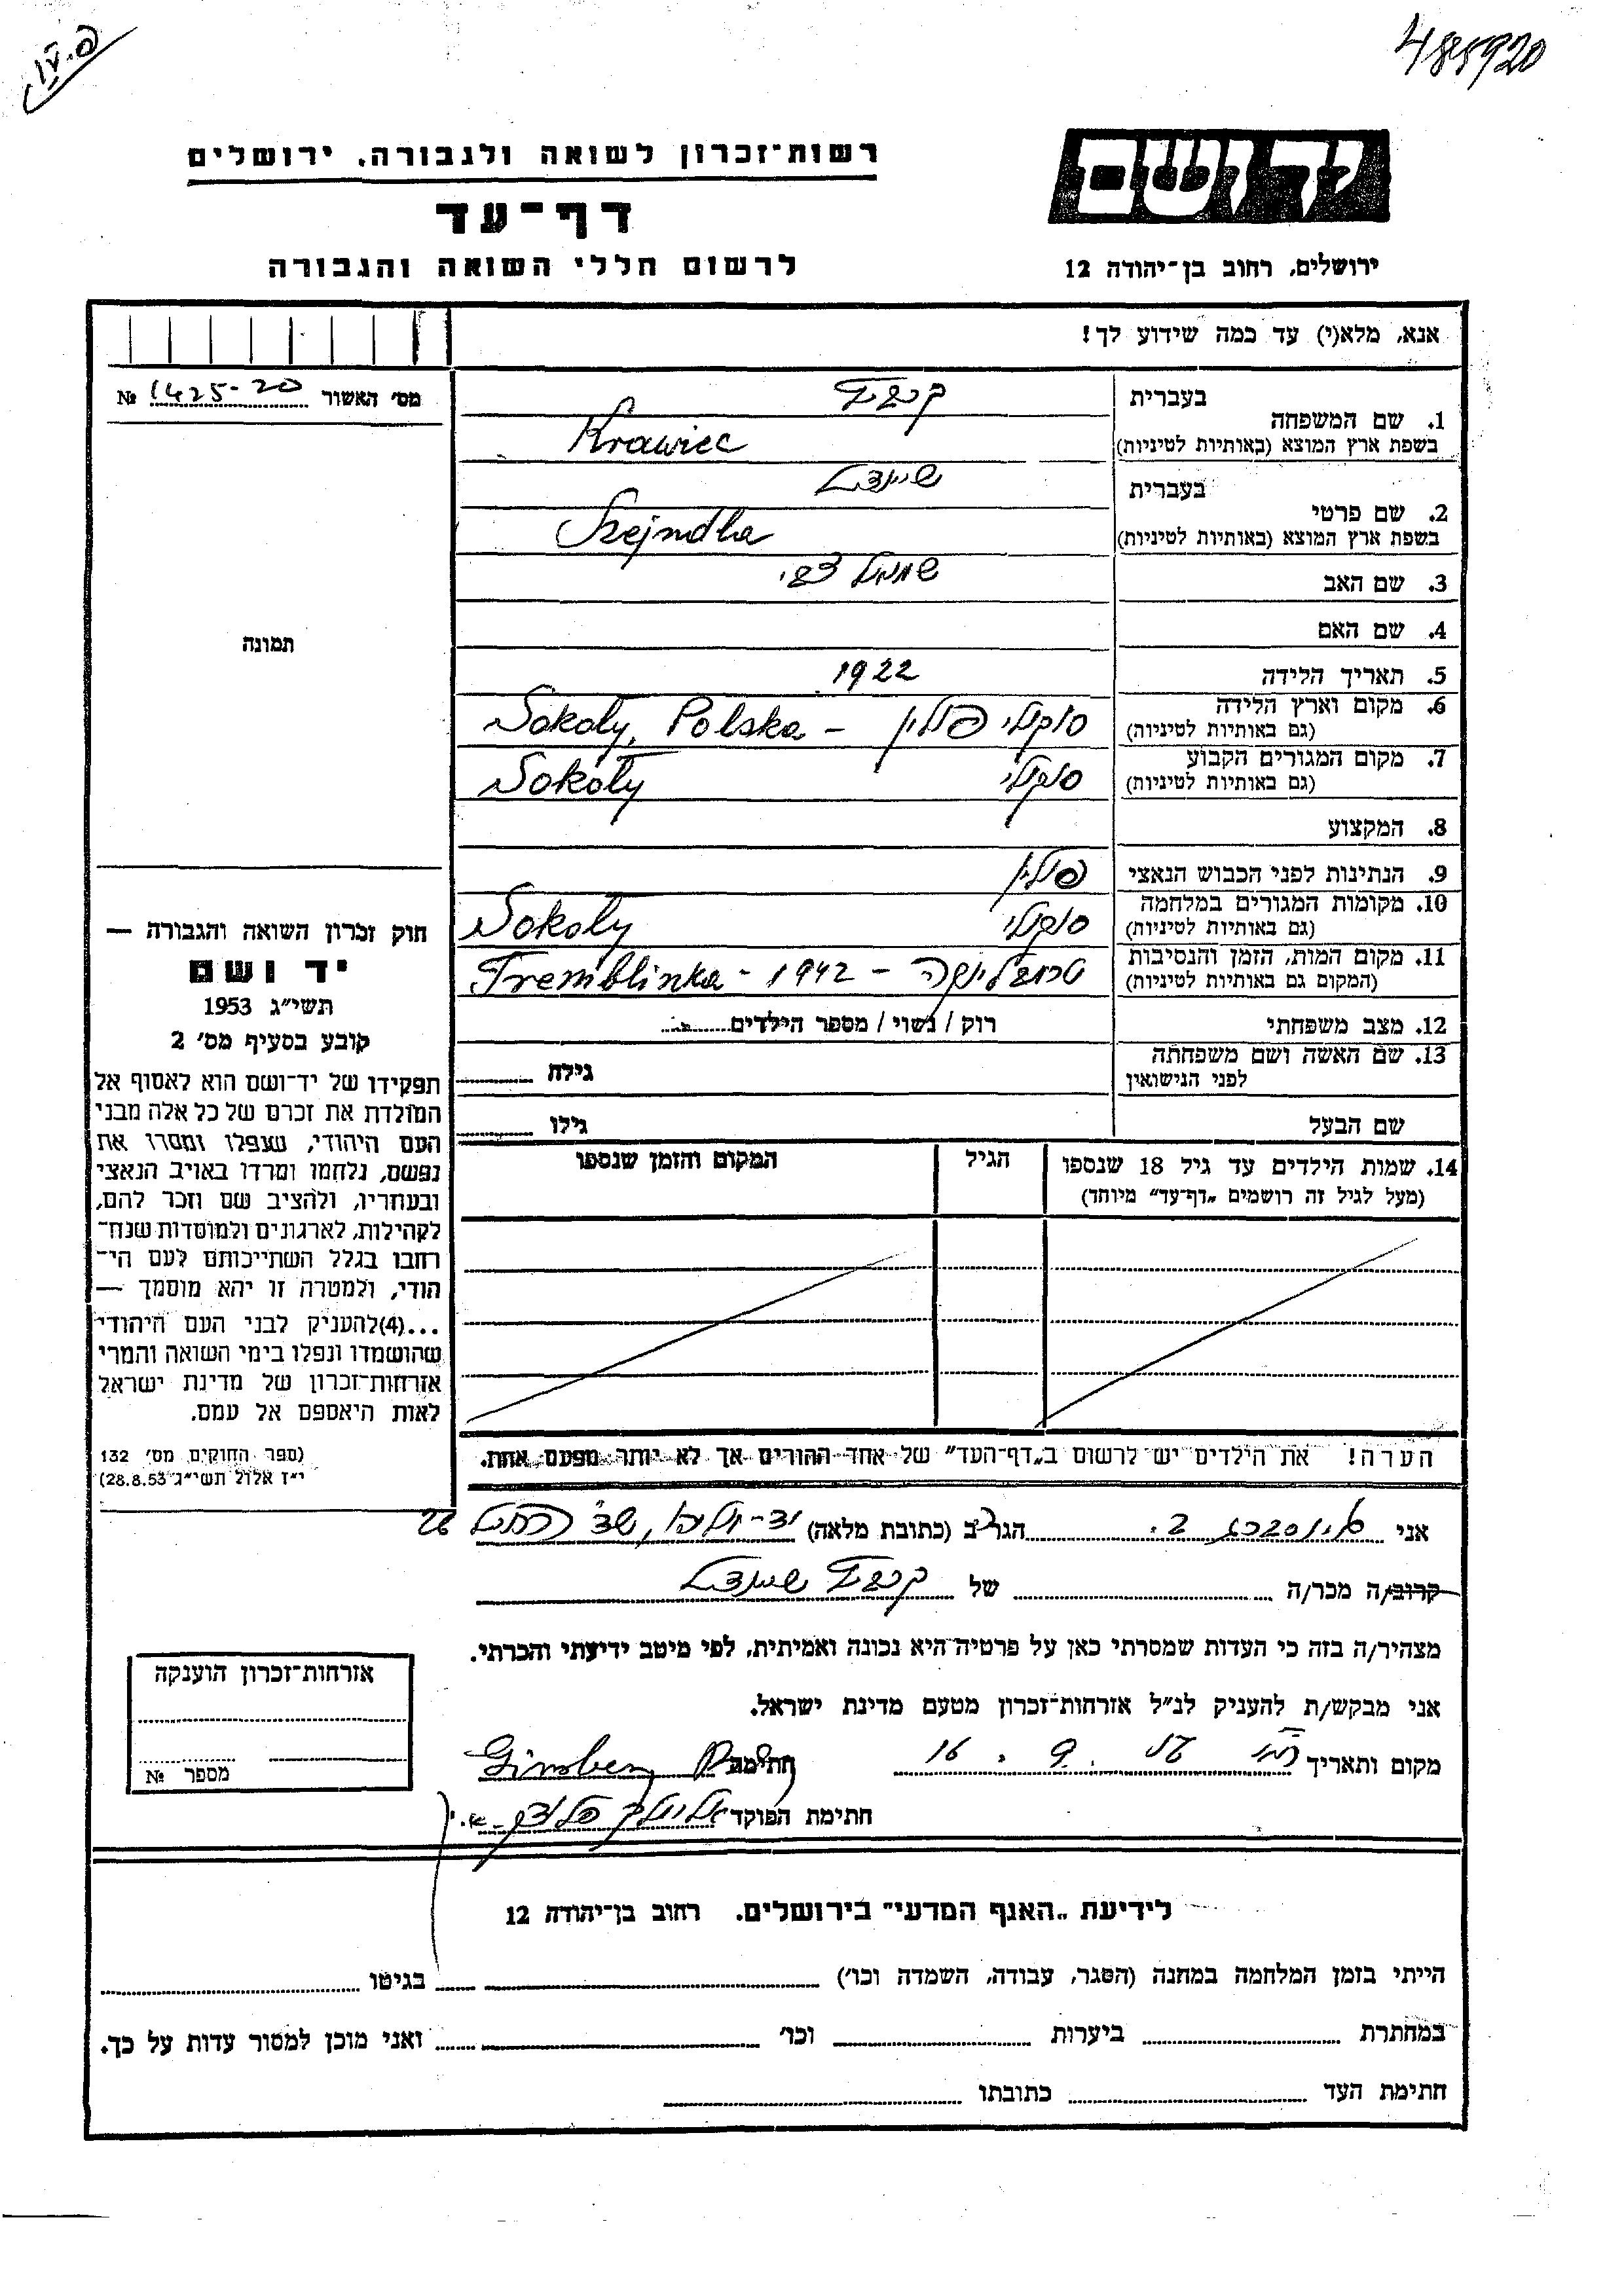 485920
רשות־זכרון לשואה ולגבורה, ירושלים
דף־עד
לרשום חללי השואה והגבורה
יד ושם
ירושלים, רחוב בן־יהודה 12
אנא, מלא(י) עד כמה שידוע לך!
מס׳ האשור 1425-20 №
תמונה
חוק זכרון השואה והגבורה —
יד ושם
תשי״ג 1953
קובע בסעיף מס׳ 2
תפקידו של יד־ושם הוא לאסוף אל
המולדת את זכרם של כל אלה מבני
העם היהודי, שנפלו ומסרו את
נפשם, נלחמו ומרדו באויב הנאצי
ובעוזריו, ולהציב שם וזכר להם,
לקהילות, לארגונים ולמוסדות שנח־
רחבו בגלל השתייכותם לעם הי־
הודי, ולמטרה זו יהא מוסמך —
...(4)להעניק לבני העם היהודי
שהושמדו ונפלו בימי השואה והמרי
אזרחות־זכרון של מדינת ישראל
לאות היאספם אל עמם.
(ספר החוקים מס׳ 132
י״ז אלול תשי״ג 28.8.53)
בעברית קרביץ
1. שם המשפחה
בשפת ארץ המוצא (באותיות לטיניות) Krawiec
בעברית שיינדל
2. שם פרטי
בשפת ארץ המוצא (באותיות לטיניות) Szejndla
3. שם האב שמואל צבי
4. שם האם
5. תאריך הלידה 1922
6. מקום וארץ הלידה סוקולי פולין – Sokoły, Polska
(גם באותיות לטיניות)
7. מקום המגורים הקבוע סוקולי Sokoły
(גם באותיות לטיניות)
8. המקצוע
9. הנתינות לפני הכבוש הנאצי פולין
10. מקומות המגורים במלחמה סוקולי Sokoły
(גם באותיות לטיניות)
11. מקום המות, הזמן והנסיבות טרמבלינקה – 1942 - Tremblinka
(המקום גם באותיות לטיניות)
12. מצב משפחתי רוק / נשוי / מספר הילדים
13. שם האשה ושם משפחתה גילה
לפני הנישואין
שם הבעל גילו
14. שמות הילדים עד גיל 18 שנספו הגיל המקום והזמן שנספו
(מעל לגיל זה רושמים „דף־עד״ מיוחד)
הערה! את הילדים יש לרשום ב„דף־העד״ של אחד ההורים אך לא יותר מפעם אחת.
אני גינסברג הגר ב (כתובת מלאה) יד-אליהו,
קרוב/ה מכר/ה של קרביץ שיינדל
מצהיר/ה בזה כי העדות שמסרתי כאן על פרטיה היא נכונה ואמיתית, לפי מיטב ידיעתי והכרתי.
אני מבקש/ת להעניק לנ״ל אזרחות־זכרון מטעם מדינת ישראל.
מקום ותאריך 16.9. חתימה Ginsberg
חתימת הפוקד
אזרחות־זכרון הוענקה
מספר №
לידיעת „האגף המדעי״ בירושלים. רחוב בן־יהודה 12
הייתי בזמן המלחמה במחנה (הסגר, עבודה, השמדה וכו׳) בגיטו
במחתרת ביערות וכו׳ ואני מוכן למסור עדות על כך.
חתימת העד כתובתו